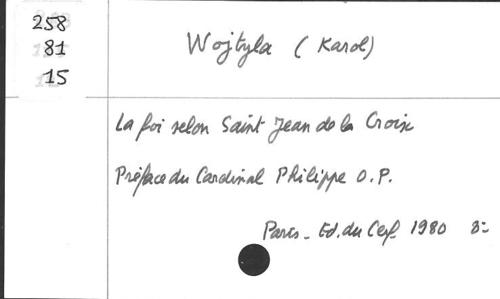 258
81
15
Wojtyla (Karol)
La foi selon Saint Jean de la Croix
Préface du Cardinal Philippe O.P.
Paris - Ed. du Cerf 1980 8=